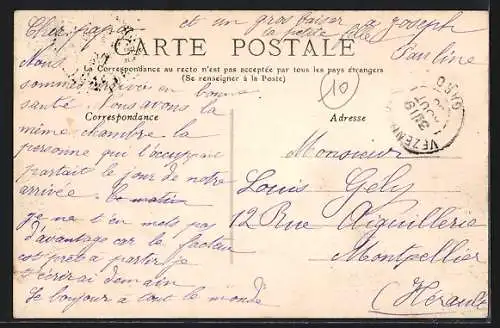 Cher papa
et un gros baiser a Joseph
ta petite fille
Pauline
CARTE POSTALE
La Correspondance au recto n'est pas acceptée par tous les pays étrangers
(Se renseigner à la Poste)
Correspondance
Adresse
10
Nous
sommes arrivée en bonne
santé Nous avons la
même chambre la
personne qui l'occupait
partait le jour de notre
arrivée. Ce matin
je ne t'en mets pas
d'avantage car le facteur
est prêt a partir je
t'écrirai demain
le bonjour à tout le monde
Monsieur
Louis Gély
12 Rue Aiguillerie
Montpellier
(Hérault
VEZEN
GARD